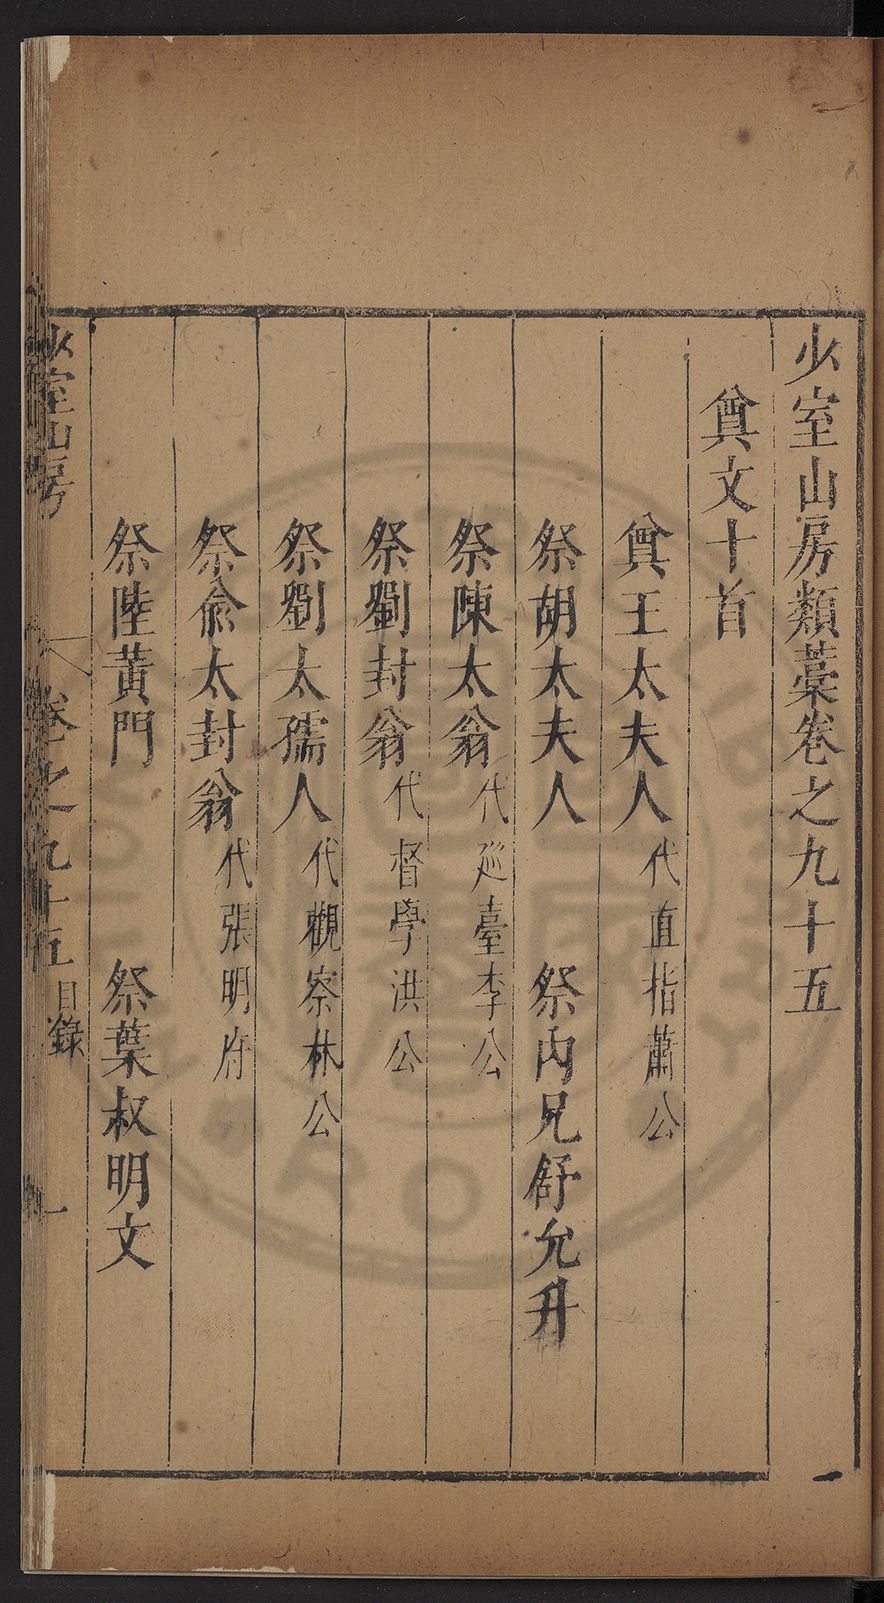 少室山房類藁卷之九十五
奠文十首
奠王太夫人代直指蕭公
祭胡太夫人 祭内兄舒允升
祭陳太翁代廵臺李公
祭劉封翁代督學洪公
祭劉太孺人代觀察林公
祭俞太封翁代張明府
祭陸黃門 祭葉叔明文
少室山房 卷之九十五 目錄 一